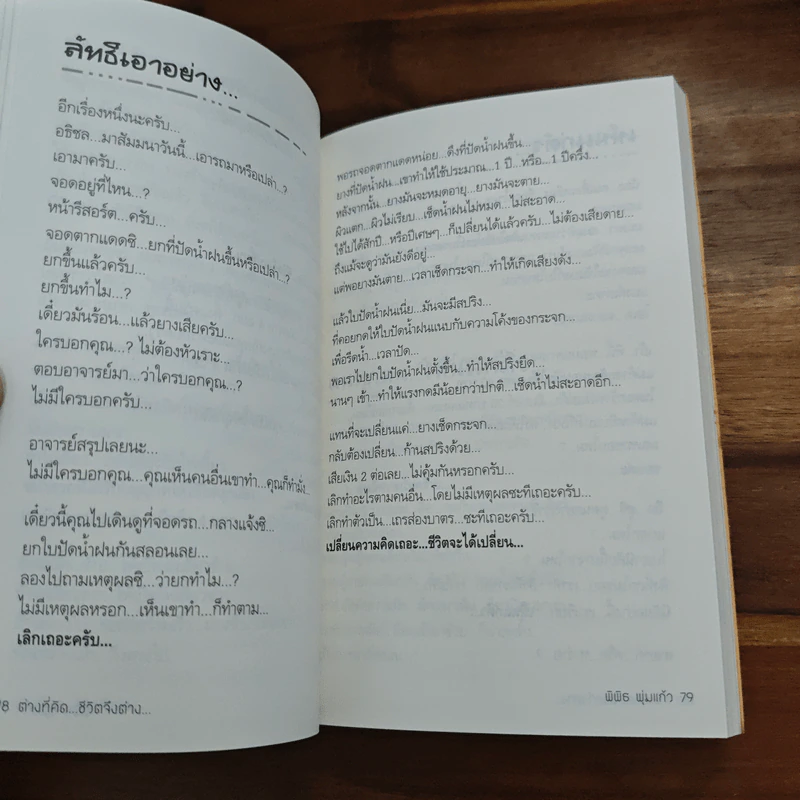 ลัทธิเอาอย่าง...
อีกเรื่องหนึ่งนะครับ...
อธิชล...มาสัมมนาวันนี้...เอารถมาหรือเปล่า...?
เอามาครับ...
จอดอยู่ที่ไหน...?
หน้ารีสอร์ต...ครับ...
จอดตากแดดซิ...ยกที่ปัดน้ำฝนขึ้นหรือเปล่า...?
ยกขึ้นแล้วครับ...
ยกขึ้นทำไม...?
เดี๋ยวมันร้อน...แล้วยางเสียครับ...
ใครบอกคุณ...? ไม่ต้องหัวเราะ...
ตอบอาจารย์มา...ว่าใครบอกคุณ...?
ไม่มีใครบอกครับ...
อาจารย์สรุปเลยนะ...
ไม่มีใครบอกคุณ...คุณเห็นคนอื่นเขาทำ...คุณก็ทำมั่ง...
เดี๋ยวนี้คุณไปเดินดูที่จอดรถ...กลางแจ้งซิ...
ยกใบปัดน้ำฝนกันสลอนเลย...
ลองไปถามเหตุผลซิ...ว่ายกทำไม...?
ไม่มีเหตุผลหรอก...เห็นเขาทำ...ก็ทำตาม...
เลิกเถอะครับ...
8 ต่างที่คิด...ชีวิตจึงต่าง...
พอรถจอดตากแดดหน่อย...ดึงที่ปัดน้ำฝนขึ้น...
ยางที่ปัดน้ำฝน...เขาทำให้ใช้ประมาณ...1 ปี...หรือ...1 ปีครึ่ง...
หลังจากนั้น...ยางมันจะหมดอายุ...ยางมันจะตาย...
ผิวแตก...ผิวไม่เรียบ...เช็ดน้ำฝนไม่หมด...ไม่สะอาด...
ใช้ไปได้สักปี...หรือปีเศษๆ...ก็เปลี่ยนได้แล้วครับ...ไม่ต้องเสียดาย...
ถึงแม้จะดูว่ามันยังดีอยู่...
แต่พอยางมันตาย...เวลาเช็ดกระจก...ทำให้เกิดเสียงดัง...
แล้วใบปัดน้ำฝนเนี่ย...มันจะมีสปริง...
ที่คอยกดให้ใบปัดน้ำฝนแนบกับความโค้งของกระจก...
เพื่อรีดน้ำ...เวลาปัด...
พอเราไปยกใบปัดน้ำฝนตั้งขึ้น...ทำให้สปริงยืด...
นานๆ เข้า...ทำให้แรงกดมีน้อยกว่าปกติ...เช็ดน้ำไม่สะอาดอีก...
แทนที่จะเปลี่ยนแค่...ยางเช็ดกระจก...
กลับต้องเปลี่ยน...ก้านสปริงด้วย...
เสียเงิน 2 ต่อเลย...ไม่คุ้มกันหรอกครับ...
เลิกทำอะไรตามคนอื่น...โดยไม่มีเหตุผลซะทีเถอะครับ...
เลิกทำตัวเป็น...เถรส่องบาตร...ซะทีเถอะครับ...
เปลี่ยนความคิดเถอะ...ชีวิตจะได้เปลี่ยน...
พิพิธ พุ่มแก้ว 79